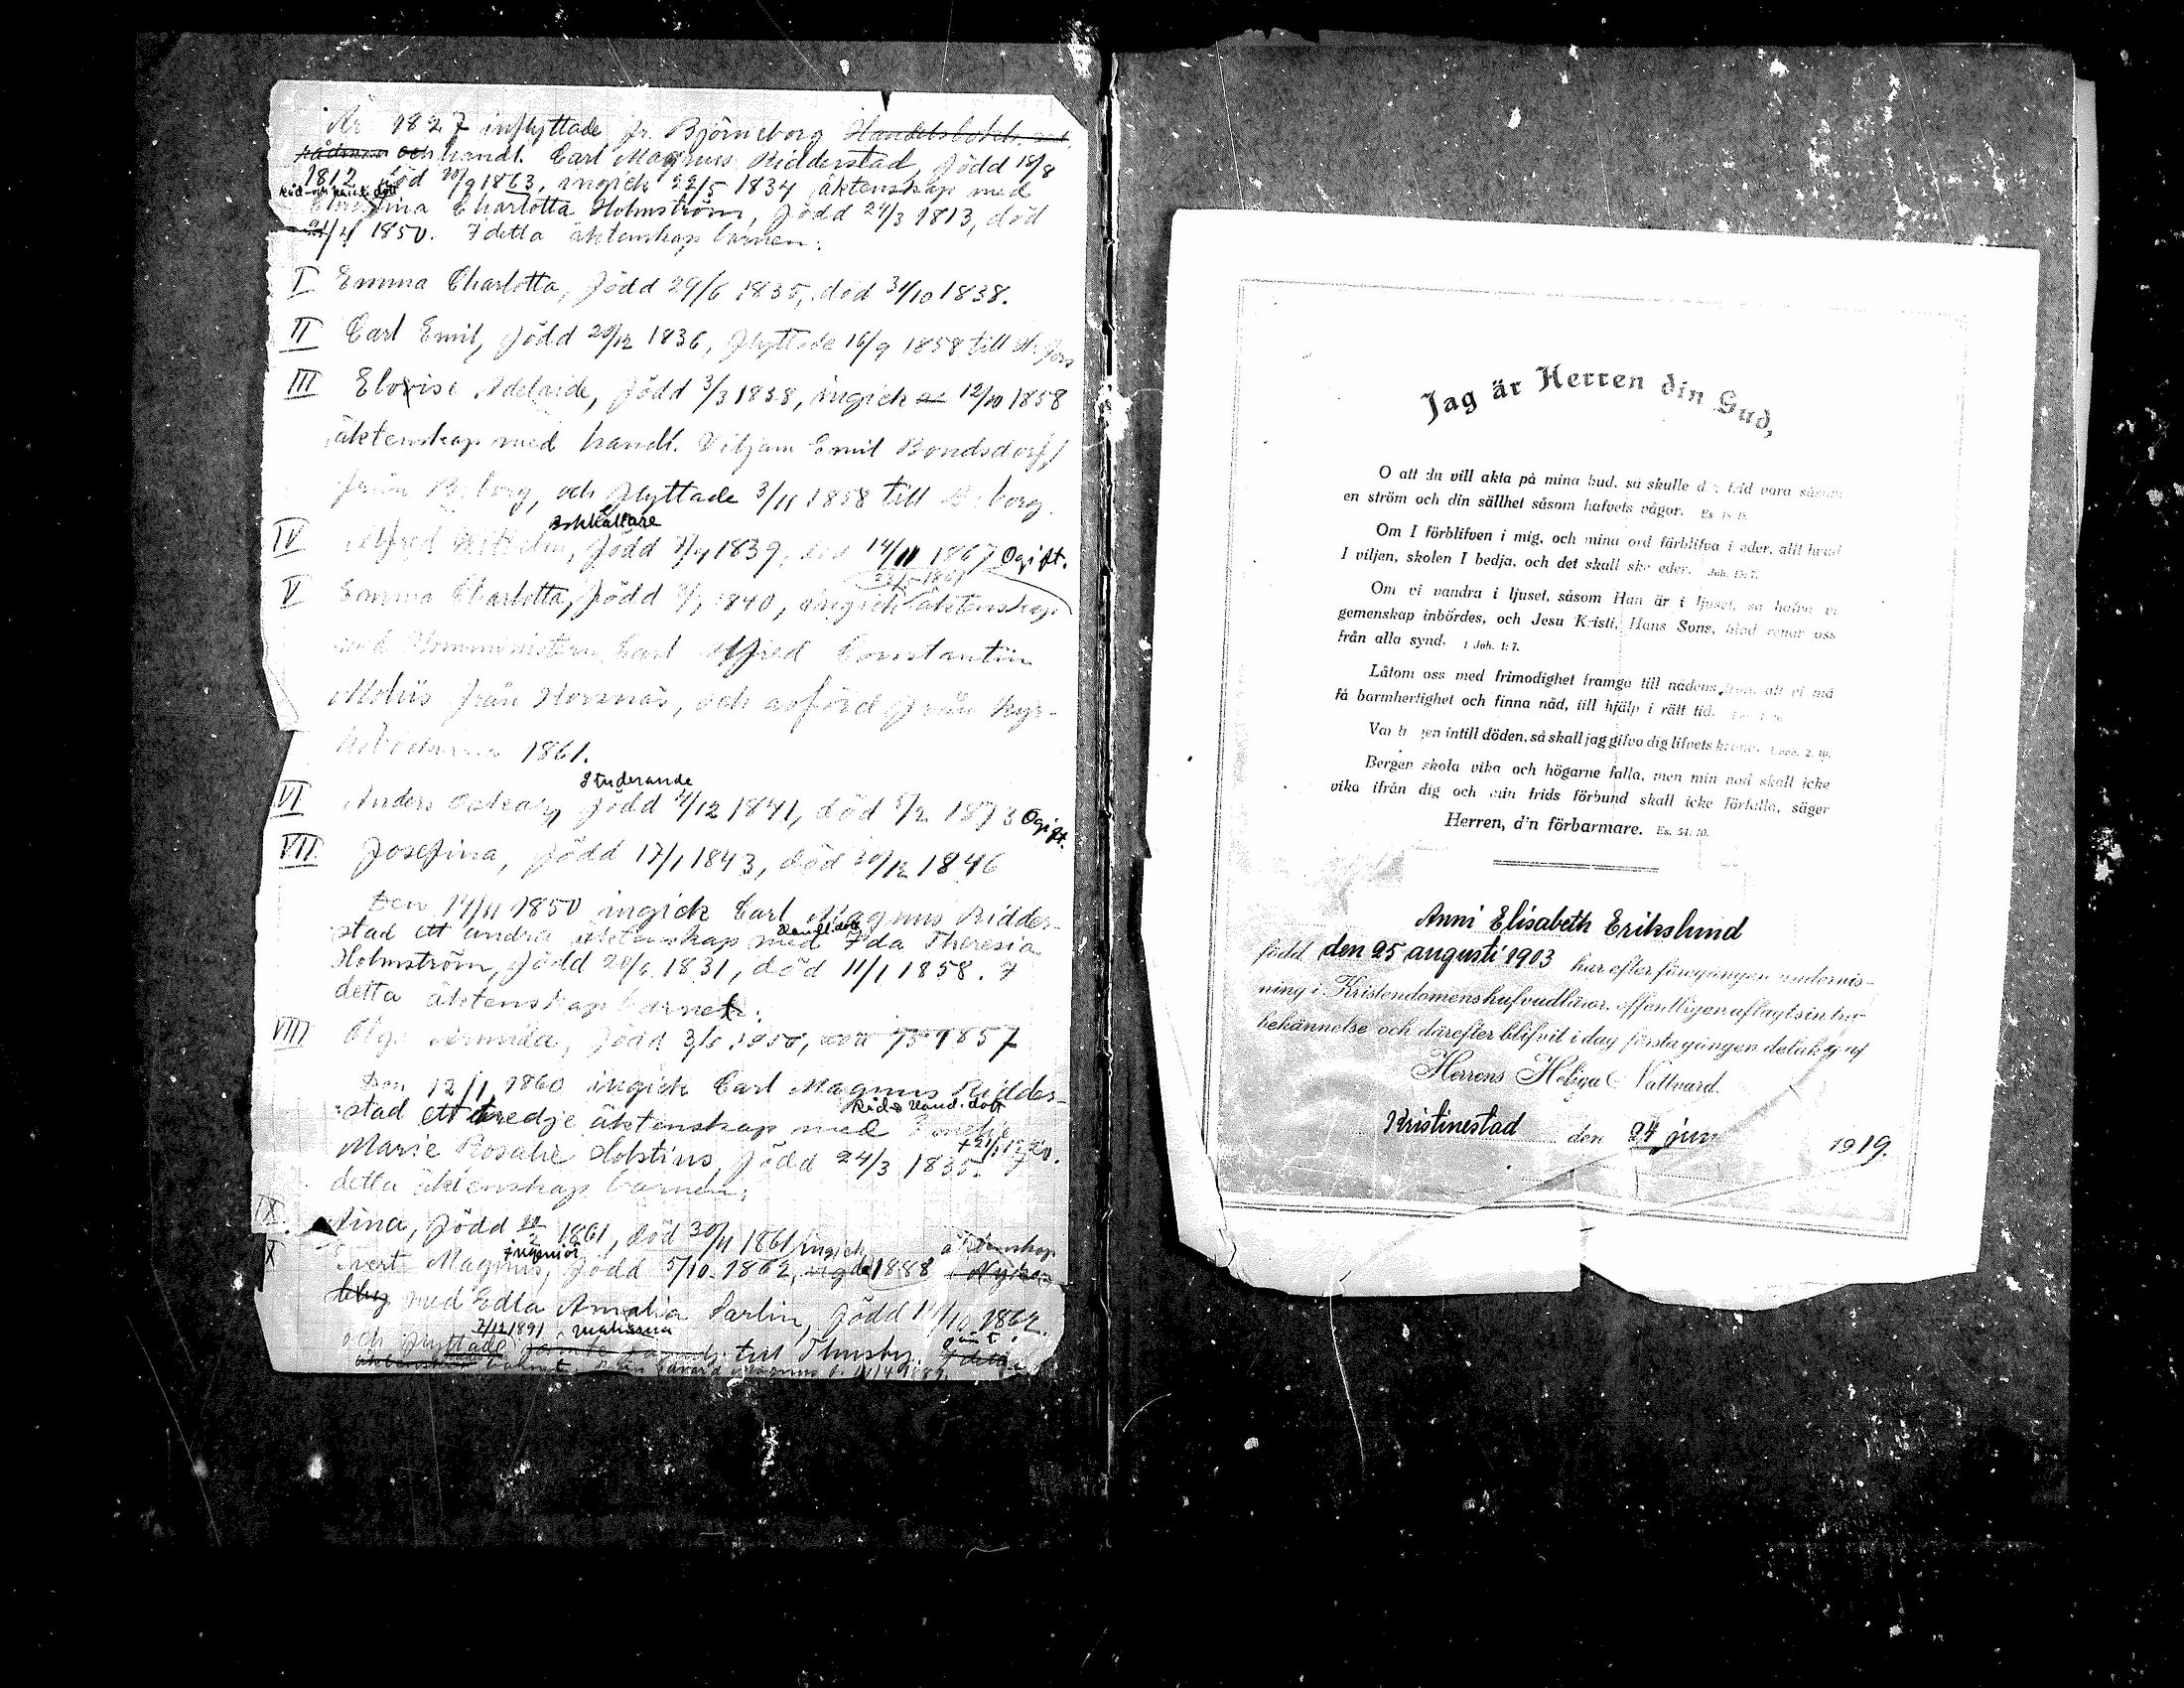 År 1827 inflyttade fr. Björneborg Handelsbokh.
rådman och handl. Carl Magnus Ridderstad, född 18/8
1812, död 20/9 1863, ingick 22/5 1834 äktenskap med
Råd- och handl. dott
Christina Charlotta Holmström, född 24/3 1813, död
1850. I detta äktenskap barnen:
I Emma Charlotta, född 29/6 1835, död 31/10 1838.
II Carl Emil, född 20/12 1836, flyttade 16/9 1858 till
III Elovise Adelaide, född 3/3 1838, ingick 12/10 1858
äktenskap med handl. Viljam Emil Bondsdorff
från borg, och flyttade 3/11 1858 till borg.
Bokhållare
IV Alfred Wilhelm, född 1839, död 14/11 1867 Ogift.
V Emma Charlotta, född 1840, ingick äktenskap
med Komministern Carl Alfred Constantin
Moliis från Korsnäs, och avförd från kyr-
1861.
Studerande
VI Anders Oskar, född 4/12 1841, död 1873 Ogift.
VII Josefina, född 17/1 1843, död 20/12 1846
Den 14/11 1850 ingick Carl Magnus Ridder-
Handl. dott
stad ett andra äktenskap med Ida Theresia
Holmström, född 1831, död 11/1 1858. I
detta äktenskap barnet:
VIII Olga 1857
Den 12/1 1860 ingick Carl Magnus Ridder-
Råd- o Hand. dott
stad ett tredje äktenskap med
Marie Rosalie Holstius, född 24/3 1835. I
detta äktenskap barnen:
IX. Alina, född 1861, död 30/11 1861 ingick äktenskap
ingeniör
X Evert Magnus, född 5/10 1862, 1888
med Edla Amalia Sarlin, född 1862.
7/12 1891 makarna
och flyttade till Tlmsby.
Jag är Herren din Gud,
O att du vill akta på mina bud, så skulle din frid vara såsom
en ström och din sällhet såsom hafvets vågor.
Om I förblifven i mig, och mina ord förblifva i eder, allt hvad
I viljen, skolen I bedja, och det skall ske eder. Joh. 15: 7.
Om vi vandra i ljuset, såsom Han är i ljuset, så hafva vi
gemenskap inbördes, och Jesu Kristi, Hans Sons, blod renar oss
från alla synd. 1 Joh. 1: 7.
Låtom oss med frimodighet framgå till nådens tron, att vi må
få barmhertighet och finna nåd, till hjälp i rätt tid.
Var trogen intill döden, så skall jag gifva dig lifvets krona. Upp. 2. 10.
Bergen skola vika och högarne falla, men min nåd skall icke
vika ifrån dig och min frids förbund skall icke förfalla, säger
Herren, din förbarmare. Es. 54: 10.
Anni Elisabeth Erikslund
född den 25 augusti 1903 har efter föregången undervis-
ning i Kristendomens hufvudläror, offentligen aflagt sin tros-
bekännelse och därefter blifvit i dag första gången delaktig af
Herrens Heliga Nattvard.
Kristinestad den 24 juni 1919.